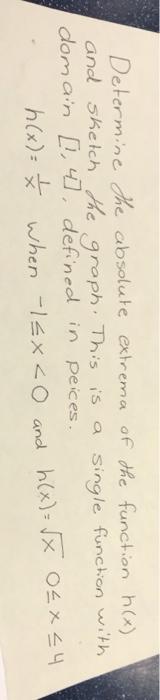 Determine the absolute extrema of the function h(x)
and sketch the graph. This is a single function with
domain [1, 4], defined in peices.
h(x) = 1/x when -1 ≤ x < 0 and h(x) = √x 0 ≤ x ≤ 4